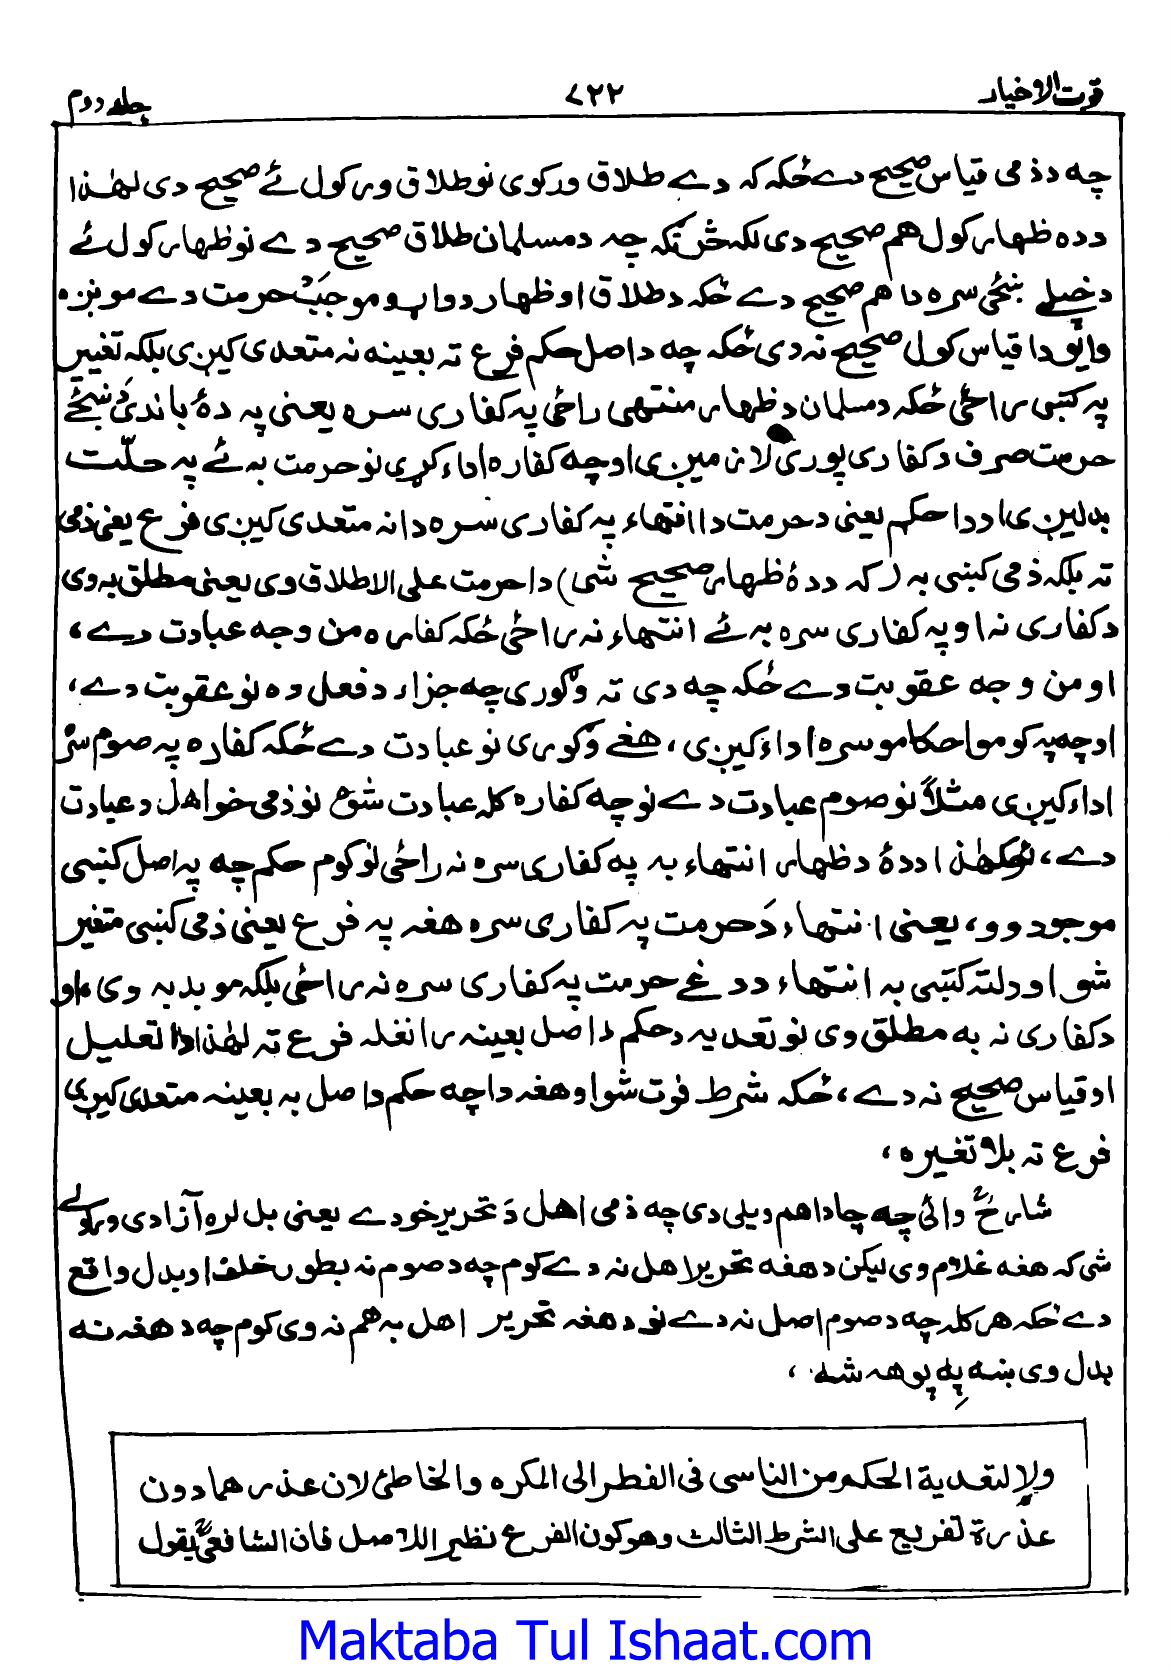 قرت الاخيار ۷۲۲ جلد دوم
چه د ذمی قیاس صحیح دے ځکه که دے طلاق ورکوی نو طلاق ورکول ئے صحیح دی لهٰذا
د ده ظهار کول هم صحیح دی لکه څرنګه چه د مسلمان طلاق صحیح دے نو ظهار کول ئے
د خپلے ښځی سره دا هم صحیح دے ځکه د طلاق او ظهار دواړو موجَب حرمت دے مونږه
وایو دا قیاس کول صحیح نه دی ځکه چه د اصل حکم فرع ته بعینه نه متعدی کیږی بلکه تغییر
په کښی راځی ځکه د مسلمان د ظهار منتهی راځی په کفاری سره یعنی په دهٔ باندی دَ ښځے
حرمت صرف د کفاری پوری لازمیږی او چه کفاره اداء کړی نو حرمت به ئے په حلّت
بدلیږی او دا حکم یعنی د حرمت دا انتهاء په کفاری سره دا نه متعدی کیږی فرع یعنی ذمی
ته بلکه ذمی کښی به (که د دهٔ ظهار صحیح شی) دا حرمت علی الاطلاق وی یعنی مطلق به وی
د کفاری نه او په کفاری سره به ئے انتهاء نه راځی ځکه کفاره من وجه عبادت دے،
او من وجه عقوبت دے ځکه چه دی ته وګوری چه جزاء د فعل ده نو عقوبت دے،
او چه په کومو احکامو سره اداء کیږی، هغے وګوری نو عبادت دے ځکه کفاره په صوم سره
اداء کیږی مثلاً نو صوم عبادت دے نو چه کفاره کله عبادت شوه نو ذمی خو اهل د عبادت
دے، لهٰذا د دهٔ د ظهار انتهاء به په کفاری سره نه راځی نو کوم حکم چه په اصل کښی
موجود وو، یعنی انتهاء دَ حرمت په کفاری سره هغه په فرع یعنی ذمی کښی متغیر
شو او دلته کښی به انتهاء د دغے حرمت په کفاری سره نه راځی بلکه موبد به وی، او
د کفاری نه به مطلق وی نو تعدیه د حکم د اصل بعینه رانغله فرع ته لهٰذا دا تعلیل
او قیاس صحیح نه دے، ځکه شرط فوت شو او هغه دا چه حکم د اصل به بعینه متعدی کیږی
فرع ته بلا تغیره،
شارحؒ وائی چه چا دا هم ویلی دی چه ذمی اهل دَ تحریر خو دے یعنی بل لره آزادی ورکولے
شی که هغه غلام وی لیکن د هغه تحریر اهل نه دے کوم چه د صوم نه بطور خلف او بدل واقع
دے ځکه هر کله چه د صوم اصل نه دے نو د هغه تحریر اهل به هم نه وی کوم چه د هغه نه
بدل وی ښه په پوهه شه،
ولا لتعدیة الحکم من الناسی فی الفطر الی المکره والخاطئ لان عذرهما دون
عذره تفریع علی الشرط الثالث وهو کون الفرع نظیر اللاصل فان الشافعیؒ یقول
Maktaba Tul Ishaat.com